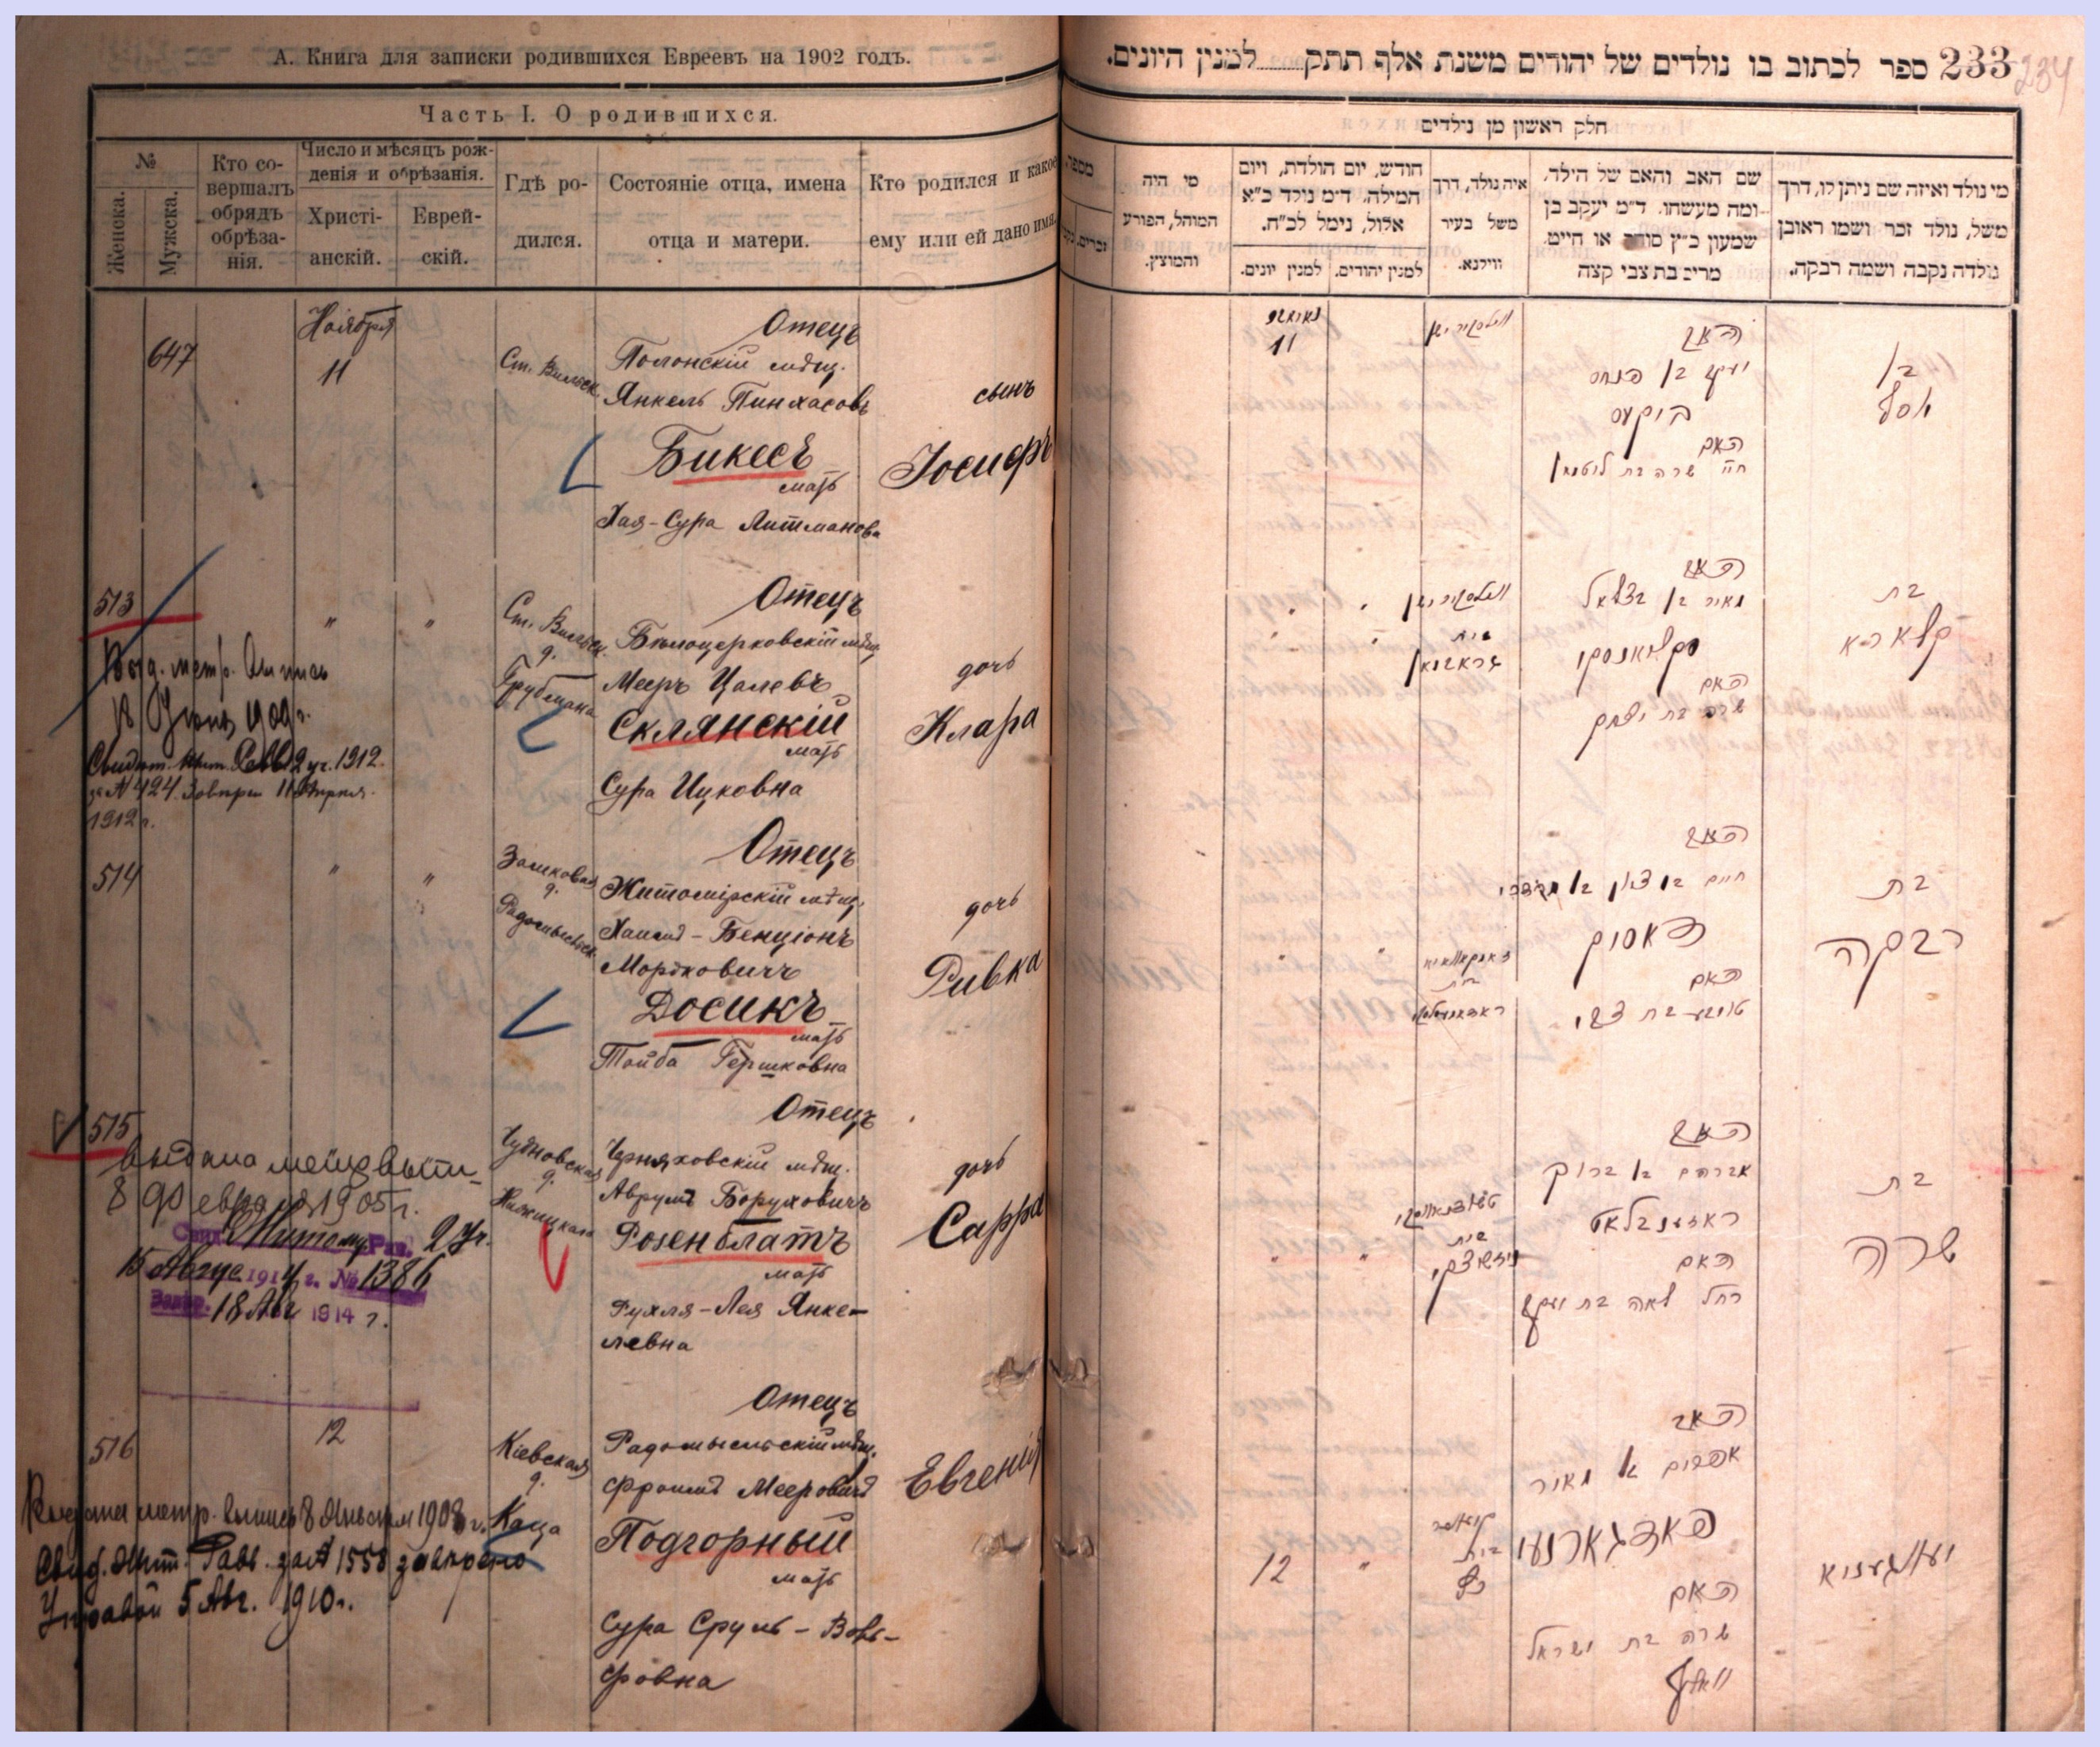 А. Книга для записки родившихся Евреевъ на 1902 годъ.
Часть I. О родившихся.
№
Женска.
Мужска.
Кто со-
вершалъ
обрядъ
обрѣза-
нія.
Число и мѣсяцъ рож-
денія и обрѣзанія.
Христі-
анскій.
Еврей-
скій.
Гдѣ ро-
дился.
Состояніе отца, имена
отца и матери.
Кто родился и какое
ему или ей дано имя.
647
Ноября
11
Ст. Вильск.
Отецъ
Полонскій мѣщ.
Янкель Пинхасовъ
Бикесъ
мать
Хая-Сура Литманова
сынъ
Іосифъ
513
Выд. метр. выпись
18 1909 г.
2 уч. 1912.
за № 424. 11 Апреля
1912 г.
"
"
Ст. Вильск.
д.
Трубмана
Отецъ
Бѣлоцерковскій мѣщ.
Мееръ Цалевъ
Склянскій
мать
Сура Ицковна
дочь
Клара
514
"
"
Замковая
д.
Радомысльск.
Отецъ
Житомірскій мѣщ.
Хаимъ-Бенціонъ
Мортковичъ
Досикъ
мать
Тойба Гершковна
дочь
Ривка
515
8 Февраля 1905 г.
Свид. Житом. Рав. 2 уч.
15 Авгус 1914 г. № 1386
Завѣр. 18 Авг 1914 г.
Чудновская
д.
Нижицкаго
Отецъ
Черняховскій мѣщ.
Аврумъ Боруховичъ
Розенблатъ
мать
Рухля-Лея Янке-
левна
дочь
Сарра
516
Выдана метр. выпись 8 Января 1908 г.
Свид. Жит. Равв. за № 1558 завѣрено
Управой 5 Авг. 1910 г.
12
Кіевская
д.
Каца
Отецъ
Радомысльскій мѣщ.
Фроимъ Мееровичъ
Подгорный
мать
Сура Сруль-Воль-
фовна
Евгеній
233 ספר לכתוב בו נולדים של יהודים משנת אלף תתק למנין היונים.
234
חלק ראשון מן נילדים
מספר.
זכרים.
מי היה
המוהל, הפורע
והמוצץ.
חודש, יום הולדת, ויום
המילה. ד״מ נולד כ״א
אלול, נימל לכ״ח.
למנין יהודים.
למנין יונים.
איה נולד, דרך
משל בעיר
ווילנא.
שם האב והאם של הילד.
ומה מעשהו. ד״מ יעקב בן
שמעון כ״ץ סוחר או חייט.
מרים בת צבי קצה
מי נולד ואיזה שם ניתן לו, דרך
משל, נולד זכר ושמו ראובן
נולדה נקבה ושמה רבקה.
11
האב
יעקב בן פנחס
ביקעס
האם
חיה שרה בת ליטמאן
בן
יוסף
האב
מאיר בן בצלאל
סקליאנסקי
האם
שרה בת יצחק
בת
קלארא
האב
חיים בן ציון בן מרדכי
דאסיק
האם
טויבע בת צבי
בת
רבקה
האב
אברהם בן ברוך
ראזענבלאט
האם
רחל לאה בת יעקב
בת
שרה
12
"
בית
כץ
האב
אפרים בן מאיר
פאדגארנעי
האם
שרה בת ישראל
וואלף
יעווגעניא